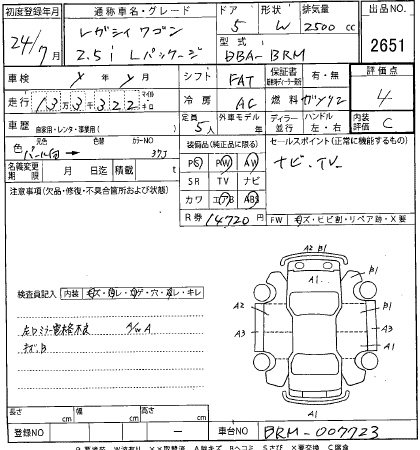 初度登録年月 通称車名・グレード ドア 形状 排気量 出品NO
24/7月 レガシィ ワゴン 5 W 2500cc 2651
2.5i Lパッケージ 型式 DBA-BRM
車検 年 月 シフト FAT 保証書 有・無 評価点
走行 13万3千322 キロ 冷房 AC 燃料 ガソリン 4
車歴 自家用・レンタ・事業用( ) 定員 5人 外車モデル 年 ディーラー 並行 ハンドル 左・右 内装評価 C
色 元色 パール白 → 色替 カラーNO 37J 装備品(純正品に限る) セールスポイント(正常に機能するもの)
PS PW AW ナビ・TV
名義変更期限 月 日迄 積載 t SR TV ナビ
注意事項(欠品・修復・不具合箇所および状態) カワ エアB ABS
R券 14720円 FW キズ・ヒビ割・リペア跡・X要
A2 B1
A1 B1
検査員記入 内装 キズ・コゲ・穴・キレ A2 A1
左ロミラー電格不良 A A3 A3
キズ、B
A1
A1
長さ cm 幅 cm 高さ cm
登録NO 車台NO BRM-007723